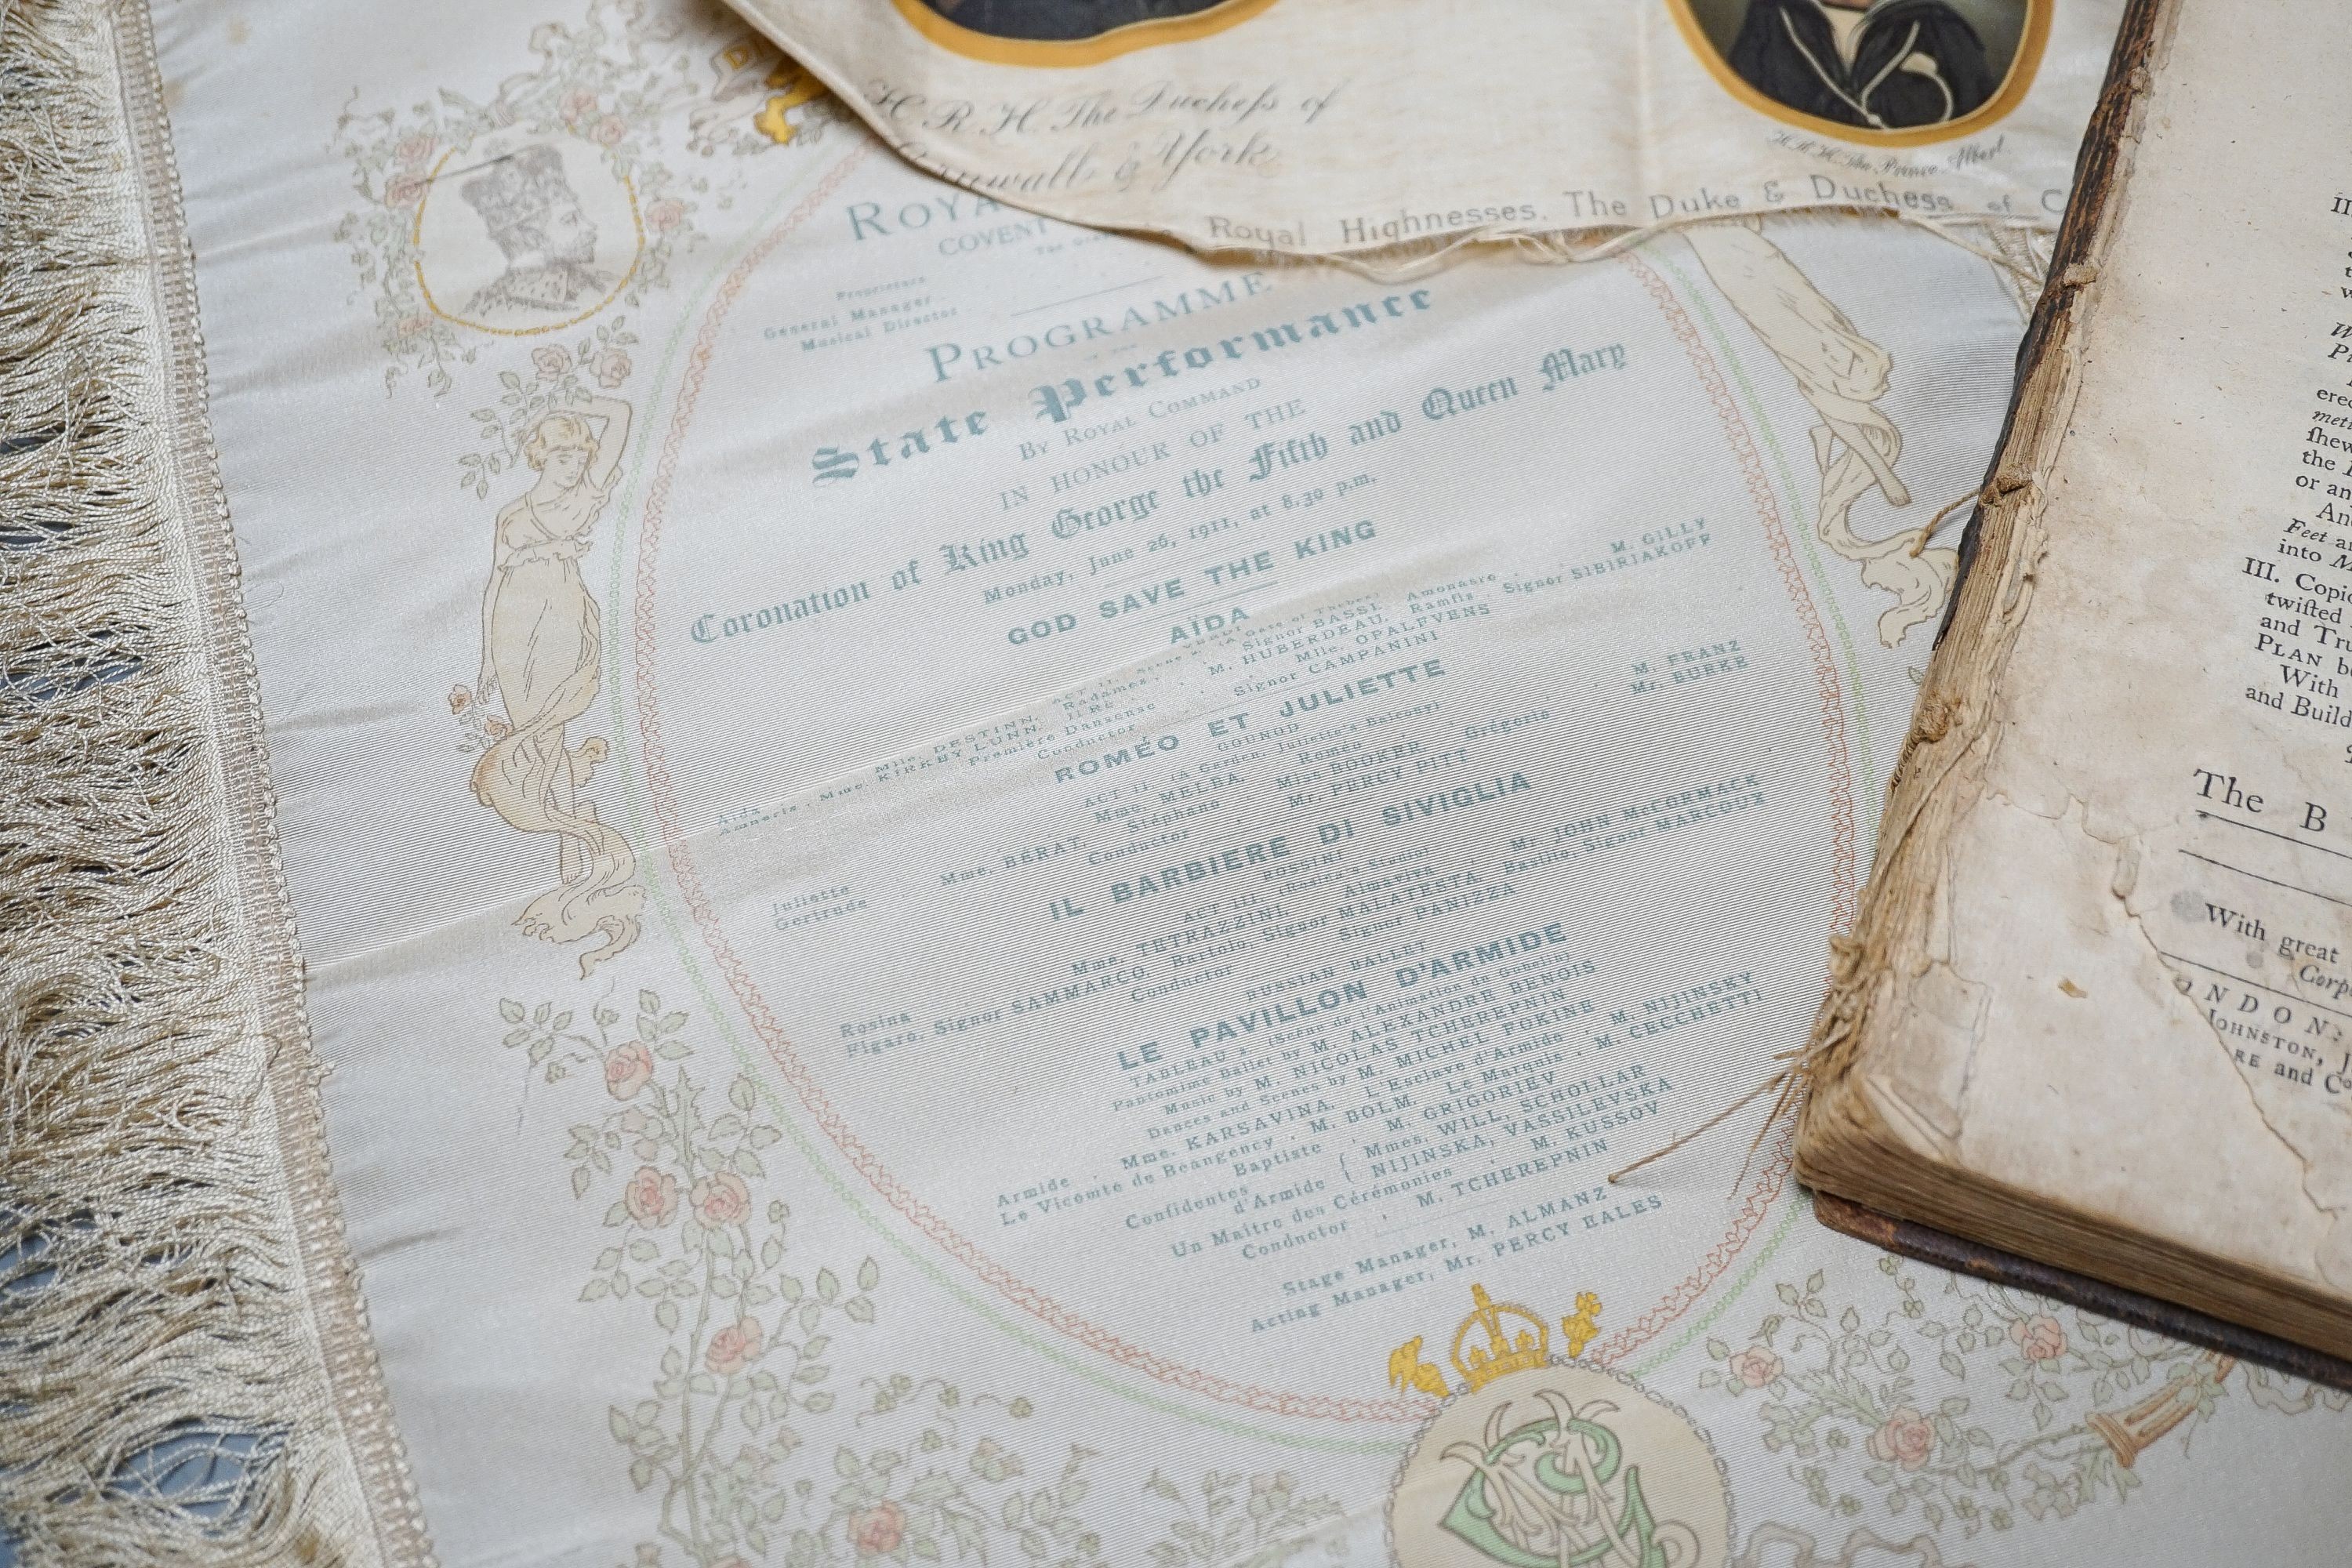 H.R.H. The Duchess of
Cornwall & York
H.R.H. The Prince Albert.
Royal Highnesses. The Duke & Duchess of C
ROYA
COVENT
Proprietors
General Manager
Musical Director
PROGRAMME
OF THE
State Performance
BY ROYAL COMMAND
IN HONOUR OF THE
Coronation of King George the Fifth and Queen Mary
Monday, June 26, 1911, at 8.30 p.m.
GOD SAVE THE KING
AÏDA
VERDI
ACT II. Scene 2. (A Gate of Thebes)
Aïda . Mlle. DESTINN. Radames . Signor BASSI. Amonasro . M. GILLY
Amneris . Mme. KIRKBY LUNN. Il Rè . M. HUBERDEAU. Ramfis . Signor SIBIRIAKOFF
Première Danseuse . Mlle. OPALFVENS
Conductor . Signor CAMPANINI
ROMÉO ET JULIETTE
GOUNOD
ACT II. (A Garden, Juliette's Balcony)
Juliette . Mme. MELBA. Roméo . M. FRANZ
Gertrude . Mme. BÉRAT. Stéphano . Miss BOOKER. Grégorio . Mr. BURKE
Conductor . Mr. PERCY PITT
IL BARBIERE DI SIVIGLIA
ROSSINI
ACT III. (Rosina's Studio)
Rosina . Mme. TETRAZZINI. Almaviva . Mr. JOHN McCORMACK
Figaro, Signor SAMMARCO. Bartolo, Signor MALATESTA. Basilio, Signor MARCOUX
Conductor . Signor PANIZZA
RUSSIAN BALLET
LE PAVILLON D'ARMIDE
TABLEAU 2. (Scène de l'Animation du Gobelin)
Pantomime Ballet by M. ALEXANDRE BENOIS
Music by M. NICOLAS TCHEREPNIN
Dances and Scenes by M. MICHEL FOKINE
Armide . Mme. KARSAVINA. L'Esclave d'Armide . M. NIJINSKY
Le Vicomte de Beaugency . M. BOLM. Le Marquis . M. CECCHETTI
Baptiste . M. GRIGORIEV
Confidentes d'Armide { Mmes. WILL, SCHOLLAR
NIJINSKA, VASSILEVSKA
Un Maître des Cérémonies . M. KUSSOV
Conductor . M. TCHEREPNIN
Stage Manager, M. ALMANZ
Acting Manager, Mr. PERCY EALES
II
ere
meti
shew
the
or an
An
Feet an
into M
III. Copi
twisted
and Tru
PLAN b
With
and Build
The B
With great
Corp
NDON:
JOHNSTON, J
RE and Co